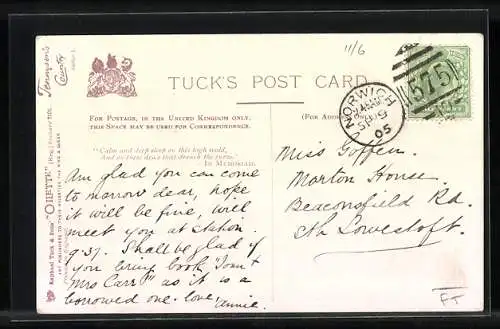 Tennyson's
Country
11/6
TUCK'S POST CARD
575
NORWICH
SP 9
05
FOR POSTAGE IN THE UNITED KINGDOM ONLY,
THIS SPACE MAY BE USED FOR CORRESPONDENCE.
(FOR ADDRESS ONLY.)
"Calm and deep peace on this high wold,
And on these dews that drench the furze."
IN MEMORIAM.
Raphael Tuck & Sons' "OILETTE" [Regd.] Postcard 7178.
ART PUBLISHERS TO THEIR MAJESTIES THE KING & QUEEN
Am glad you can come
to morrow dear, hope
it will be fine, will
meet you at station.
9.37. Shall be glad if
you bring book "Tom &
Mrs Carr" as it is a
borrowed one. love Annie.
Miss Goffen.
Morton House.
Beaconsfield Rd
Sth Lowestoft.
FT